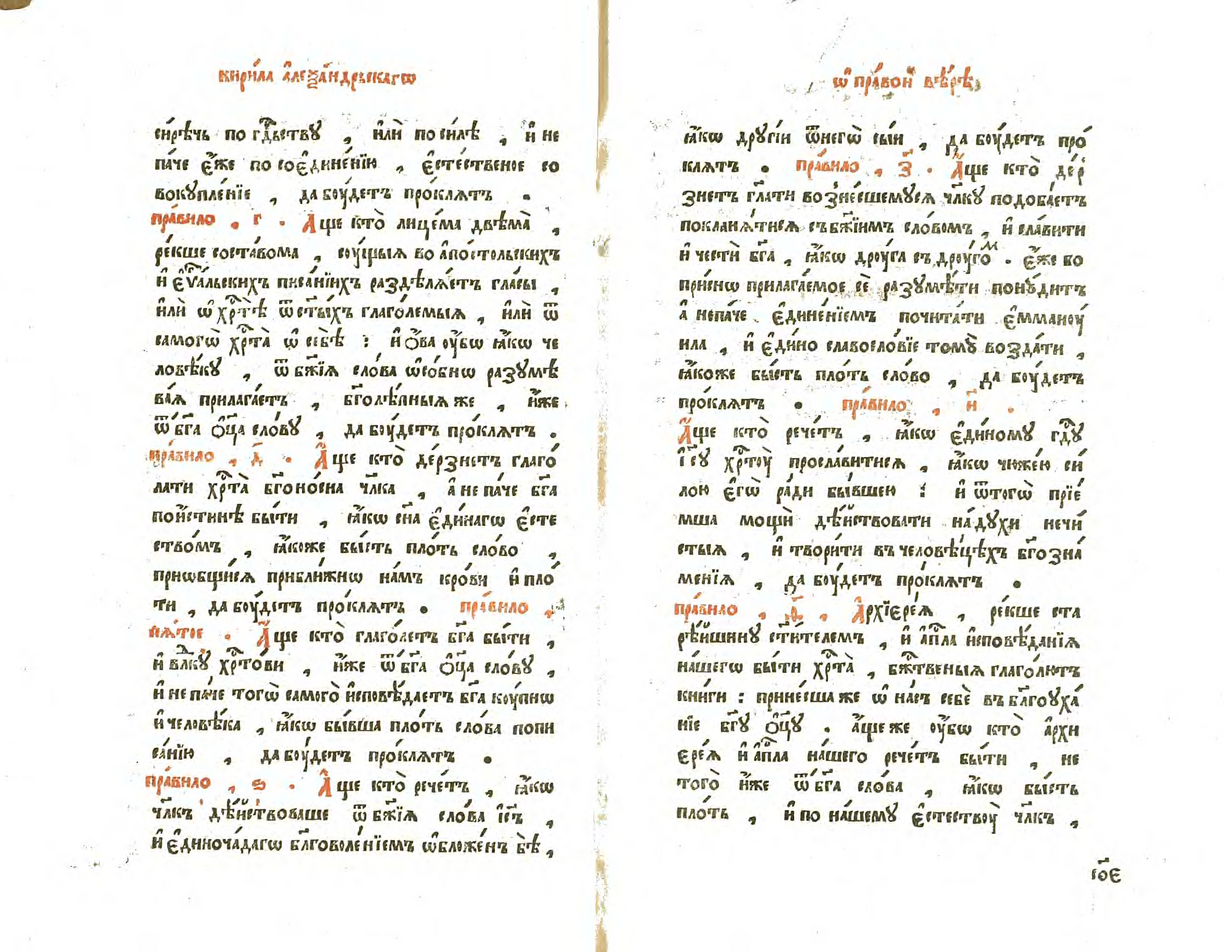 кири́ла а҆леѯа́ндрьскагѡ
сирѣ́чь по гдⷭ҇ьствꙋ , и҆лѝ по си́лѣ , и҆ не
па́че є҆́же по сое҆дине́нїю , є҆сте́ственое со
вокꙋпле́нїе , да боу́детъ про́клятъ .
пра́вило , г҃ . А҆́ще кто̀ лице́ма двѣма̀ ,
ре́кше соста́вома , соу́щыѧ во а҆по́стольскихъ
и҆ є҆ѵⷢ҇а́льскихъ писа́нїихъ раздѣлѧ́етъ гла́сы ,
и҆лѝ ѡ҆ хрⷭ҇тѣ̀ ѿ ст҃ы́хъ глаго́лемыѧ , и҆лѝ ѿ
самогѡ̀ хрⷭ҇та̀ ѡ҆ себѣ̀ : и҆ ѻ҆́ва оу҆́бѡ ꙗ҆́кѡ че
ловѣ́кꙋ , ѿ бж҃їѧ сло́ва ѡ҆со́бнѡ разꙋмѣ
ва́ѧ прилага́етъ , бг҃олѣ́пныѧ же , ꙗ҆́же
ѿ бг҃а ѻ҆ц҃а сло́вꙋ , да боу́детъ про́клѧтъ .
пра́вило , д҃ . А҆́ще кто̀ де́рзнетъ глаго
лати хрⷭ҇та̀ бг҃оно́сна чл҃ка , а҆ не па́че бг҃а
пои́стинѣ бы́ти , ꙗ҆́кѡ сн҃а є҆ди́нагѡ є҆сте
ство́мъ , ꙗ҆́коже бы́сть пло́ть сло́во ,
приѡбщи́сѧ прибли́жнѡ на́мъ кро́ви и҆ пло́
ти , да боу́детъ про́клѧтъ . пра́вило ,
пѧ́тое . А҆́ще кто̀ глаго́летъ бг҃а бы́ти ,
и҆ влⷣкꙋ хрⷭ҇то́ви , и҆́же ѿ бг҃а ѻ҆ц҃а сло́вꙋ ,
и҆ не па́че того̀ самого̀ и҆сповѣ́даетъ бг҃а коу́пнѡ
и҆ человѣ́ка , ꙗ҆́кѡ бы́вша пло́ть сло́ва попи
са́нїю , да боу́детъ про́клѧтъ .
пра́вило , ѕ҃ . А҆́ще кто̀ рече́тъ , ꙗ҆́кѡ
чл҃къ дѣ́йствоваше ѿ бж҃їѧ сло́ва і҆с҃ъ ,
и҆ є҆диноча́дагѡ бл҃говоле́нїемъ ѡ҆бложе́нъ бѣ̀ ,
ѡ҆ пра́вой вѣ́рѣ
ꙗ҆́кѡ дрꙋгі́и ѿнегѡ̀ сы́и , да боу́детъ про́
клѧтъ . пра́вило , з҃ . А҆́ще кто̀ де́р
знетъ гл҃ати возне́сшемꙋсѧ чл҃кꙋ подоба́етъ
покланѧ́тисѧ съ бж҃їимъ сло́вомъ , и҆ сла́вити
и҆ че́сти бг҃а , ꙗ҆́кѡ дроу́га съ дроу́гоⷨ . є҆́же бо
при́снѡ прилага́емое сѐ разꙋмѣ́ти понꙋ́дитъ
а҆ непа́че є҆дине́нїемъ почита́ти є҆мманоу
ила , и҆ є҆ди́но славосло́вїе томꙋ̀ возда́ти ,
ꙗ҆́коже бы́сть пло́ть сло́во , да боу́детъ
про́клѧтъ . пра́вило , и҃ .
А҆́ще кто̀ рече́тъ , ꙗ҆́кѡ є҆ди́номꙋ гдⷭ҇ꙋ
і҆с҃ꙋ хрⷭ҇тоу̀ просла́витисѧ , ꙗ҆́кѡ чюже́ю си́
лою є҆гѡ̀ ра́ди бы́вшею : и҆ ѿтогѡ̀ прїе́
мша мощѝ дѣ́йствовати на дꙋ́хи нечи́
стыѧ , и҆ твори́ти въ человѣ́цѣхъ бг҃озна́
ме́нїѧ , да боу́детъ про́клѧтъ .
пра́вило , ѳ҃ , А҆рхїере́ѧ , ре́кше ста
рѣ́йшинꙋ ст҃и́телемъ , и҆ а҆пⷭ҇ла и҆сповѣ́данїѧ
на́шегѡ бы́ти хрⷭ҇та̀ , бж҃тⷭ҇веныѧ глаго́лютъ
кни́ги : прине́сша же ѡ҆ на́съ себѐ въ бл҃гоꙋха́
нїе бг҃ꙋ ѻ҆ц҃ꙋ . а҆́ще же оу҆́бѡ кто̀ а҆рхи
ере́ѧ и҆ а҆пⷭ҇ла на́шего рече́тъ бы́ти , не
того̀ и҆́же ѿ бг҃а сло́ва , ꙗ҆́кѡ бы́сть
пло́ть , и҆ по на́шемꙋ є҆стествоу̀ чл҃къ ,
сѻ҃є